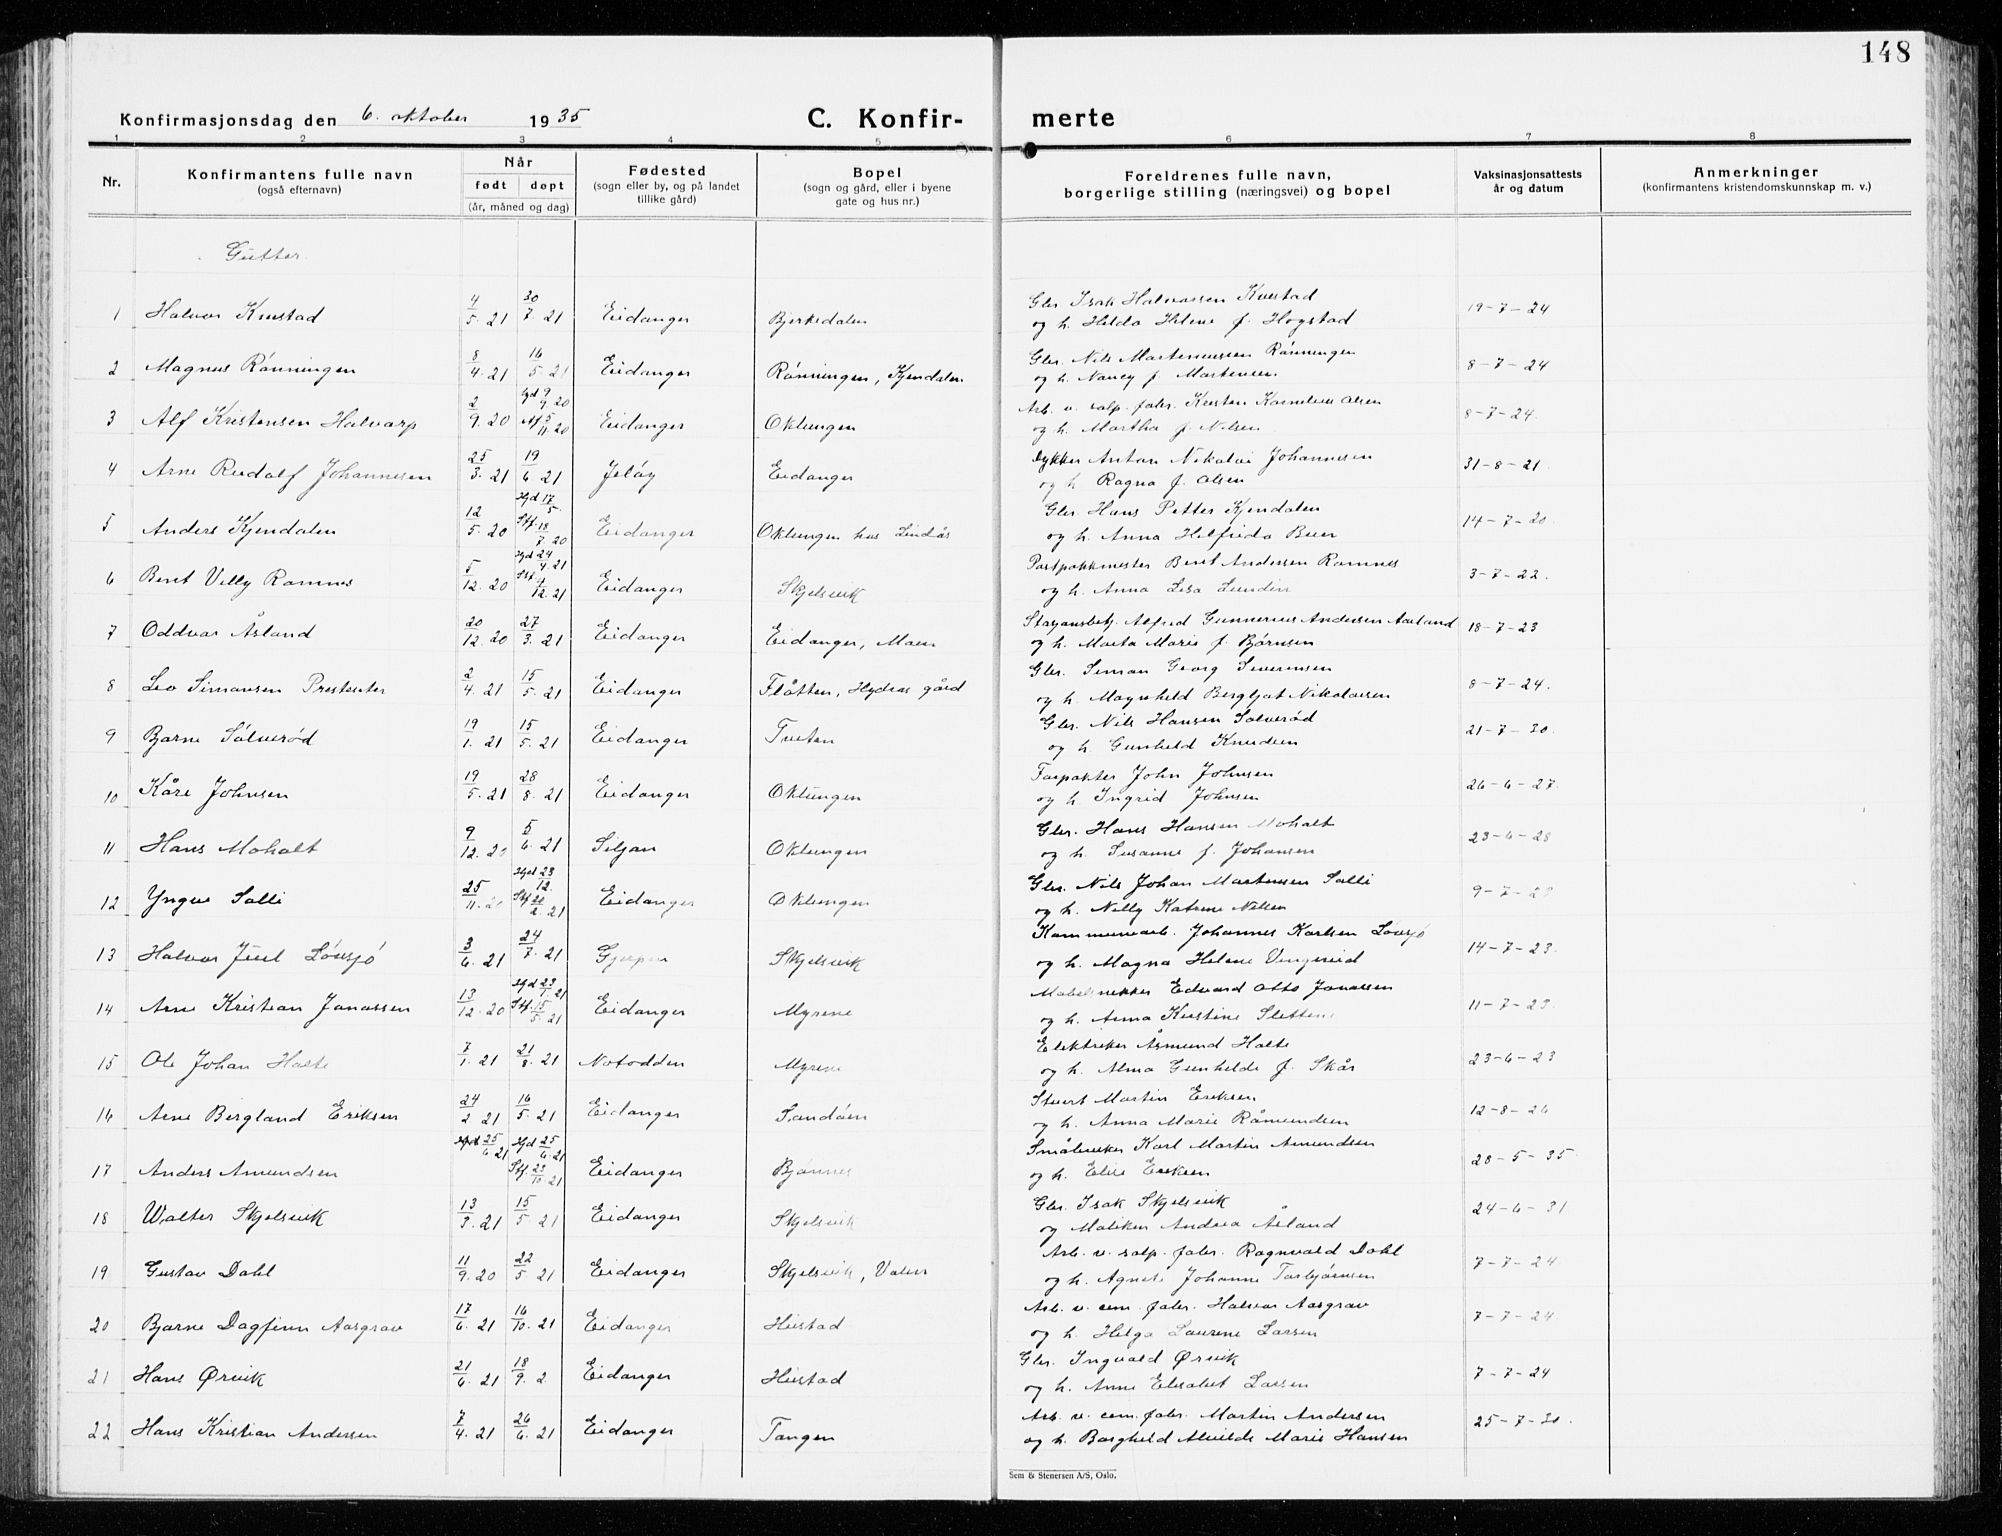 148
Konfirmasjonsdag den 6. oktober 1935 C. Konfirmerte
1 2 3 4 5 6 7 8
Nr. Konfirmantens fulle navn (også efternavn) Når født døpt (år, måned og dag) Fødested (sogn eller by, og på landet tillike gård) Bopel (sogn og gård, eller i byene gate og hus nr.) Foreldrenes fulle navn, borgerlige stilling (næringsvei) og bopel Vaksinasjonsattests år og datum Anmerkninger (konfirmantens kristendomskunnskap m. v.)
Gutter.
1 Halvor Knustad 4/5. 21 30/7. 21 Eidanger Bjerkedalen Gbr. Isak Halvorsen Knustad og h. Helda Helene f. Hogstad 19-7-24
2 Magnus Rønningen 8/4. 21 16/5. 21 Eidanger Rønningen, Kjendalen Gbr. Nils Martinussen Rønningen og h. Nancy f. Martensen 8-7-24
3 Alf Kristensen Halvarp 2/9. 20 hjd 9/9. 20 5/11. 20 Eidanger Oklungen Arb. v. salp. fabr. Karsten Kornelius Olsen og h. Martha f. Nilsen 8-7-24.
4 Arne Rudolf Johannesen 25/3. 21 19/6 21 Jeløy Eidanger Dykker Anton Nikolai Johannesen og h. Ragna f. Olsen 31-8-21.
5 Anders Kjendalen 12/5. 20 hjd 17/5. Stf. 18/7. 20 Eidanger Oklungen hos Lindås Gbr. Hans Petter Kjendalen og h. Anna Helfrida Buer 14-7-20.
6 Bent Villy Ramnes 5/12. 20 hjd 24/4 21 Stf. 4/12. 21 Eidanger Skjelsvik Postpakkmester Bent Andersen Ramnes og h. Anna Lisa Lundin 3-7-22.
7 Oddvar Åsland 20/12. 20 27/3. 21 Eidanger Eidanger, Moen Alfred Gunnerius Andersen Aasland og h. Marta Marie f. Bjørnsen 18-7-23
8 Leo Simonsen Presteseter 2/4. 21 15/5. 21 Eidanger Flåtten, Hydros gård Gbr. Simon Georg Severinsen og h. Magnhild Bergljot Nikolaisen 8-7-24.
9 Bjarne Solverød 19/1. 21 15/5. 21 Eidanger Tveten Gbr. Nils Hansen Solverød og h. Gunhild Knudsen 21-7-30.
10 Kåre Johnsen 19/5. 21 28/8. 21 Eidanger Oklungen Forpakter John Johnsen og h. Ingrid Johnsen 26-6-27.
11 Hans Moholt 9/12. 20 5/6. 21 Siljan Oklungen Gbr. Hans Hansen Moholt og h. Susanne f. Johansen 23-6-28
12 Yngve Solli 25/11. 20 hjd 23/12. Stf 20/2. 21 Eidanger Oklungen Gbr. Nils Johan Martinsen Solli og h. Nilly Katrine Nilsen 9-7-28
13 Halvor Juel Løvsjø 3/6. 21 24/7. 21 Gjerpen Skjelsvik Kommunearb. Johannes Karlsen Løvsjø og h. Magna Helene 14-7-23.
14 Arne Kristian Jonassen 13/12. 20 hjd 23/1. 21 Stf. 15/5. 21 Eidanger Myrene Møbelsnekker Edvard Otto Jonassen og h. Anna Kirstine Slettene 11-7-23.
15 Ole Johan Halte 7/1. 21 21/8. 21 Notodden Myrene Elektriker Åsmund Halte og h. Alma Gunhilde f. Skår 23-6-23
16 Arne Bergland Eriksen 24/2 21 16/5. 21 Eidanger Sandøen Stuert Martin Eriksen og h. Anna Marie Råmundsen 12-8-26
17 Anders Amundsen 25/6 21 hjd 25/6. 21 Stf. 23/10. 21 Eidanger Bjønnes Småbruker Karl Martin Amundsen og h. Elise Eriksen 28-5-35.
18 Walter Skjelsvik 13/3. 21 15/5 21 Eidanger Skjelsvik Gbr. Isak Skjelsvik og Andrea Åsland 24-6-31
19 Gustav Dahl 11/9. 20 22/5 21 Eidanger Skjelsvik, Valen Arb. v. salp. fabr. Ragnvald Dahl og h. Agnete Johanne Torbjørnsen 7-7-24
20 Bjarne Dagfinn Aasgrav 17/6. 21 16/10. 21 Eidanger Heistad Arb. v. cem. fabr. Halvor Aasgrav og h. Helga Laurine Larsen 7-7-24
21 Hans Ørvik 21/6. 21 18/9. 2 Eidanger Heistad Gbr. Ingvald Ørvik og h. Anne Elisabet Larsen 7-7-24
22 Hans Kristian Andersen 7/4. 21 26/6. 21 Eidanger Tangen Arb. v. cem. fabr. Martin Andersen og h. Borghild Alvilde Marie Hansen 25-7-30.
Sem & Stenersen A/S, Oslo.